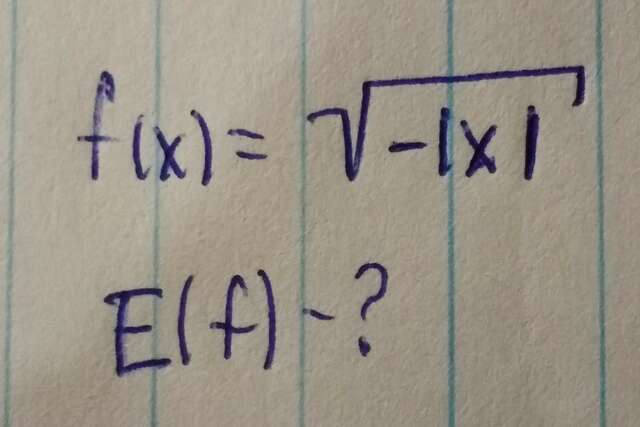 f(x) = √-|x|
E(f) - ?